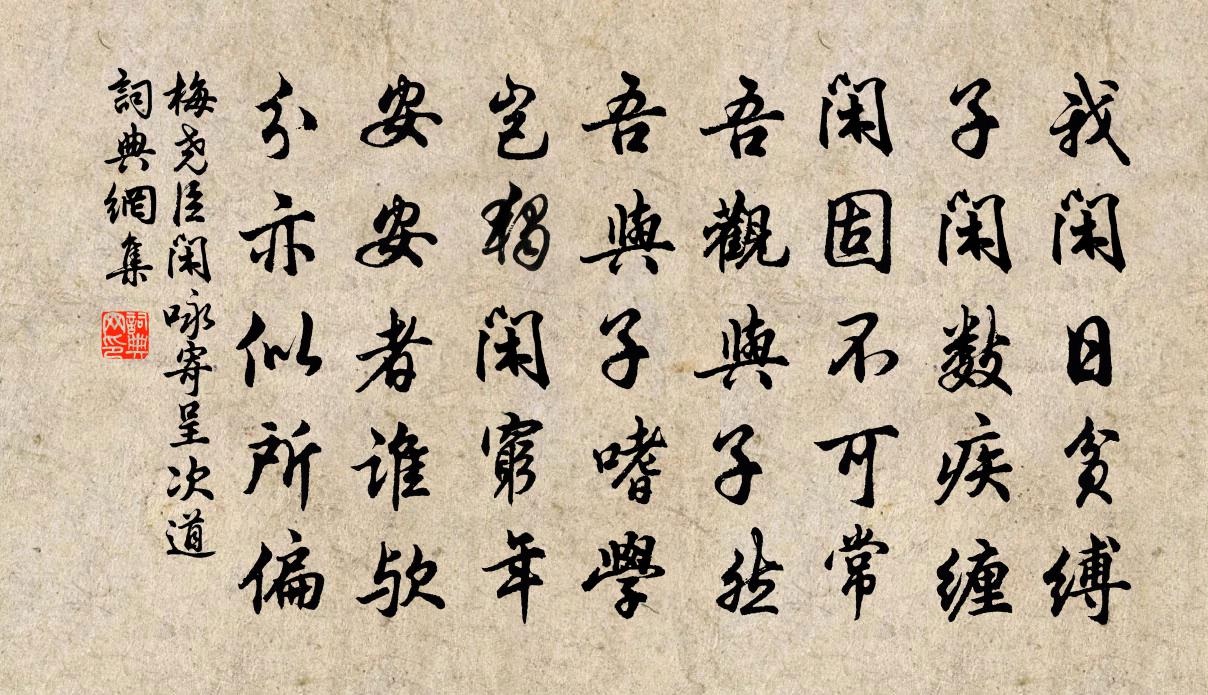 我閑日貧縛
子閑數疾纏
閑固不可常
吾觀與子然
吾與子嗜學
豈獨閑窮年
安安者誰歟
分亦似所偏
梅堯臣閑咏寄呈次道
詞典網集
詞典网印